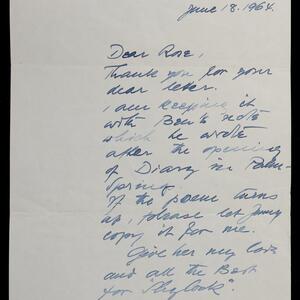 June 18. 1964.
Dear Rose,
Thank you for your
dear letter.
I am keeping it
with Ben's note
which he wrote
after the opening
of Diary in Palm-
Spring.
If the poem turns
up, please let Jenny
copy it for me.
Give her my love
and all the Best
for "Shylock".